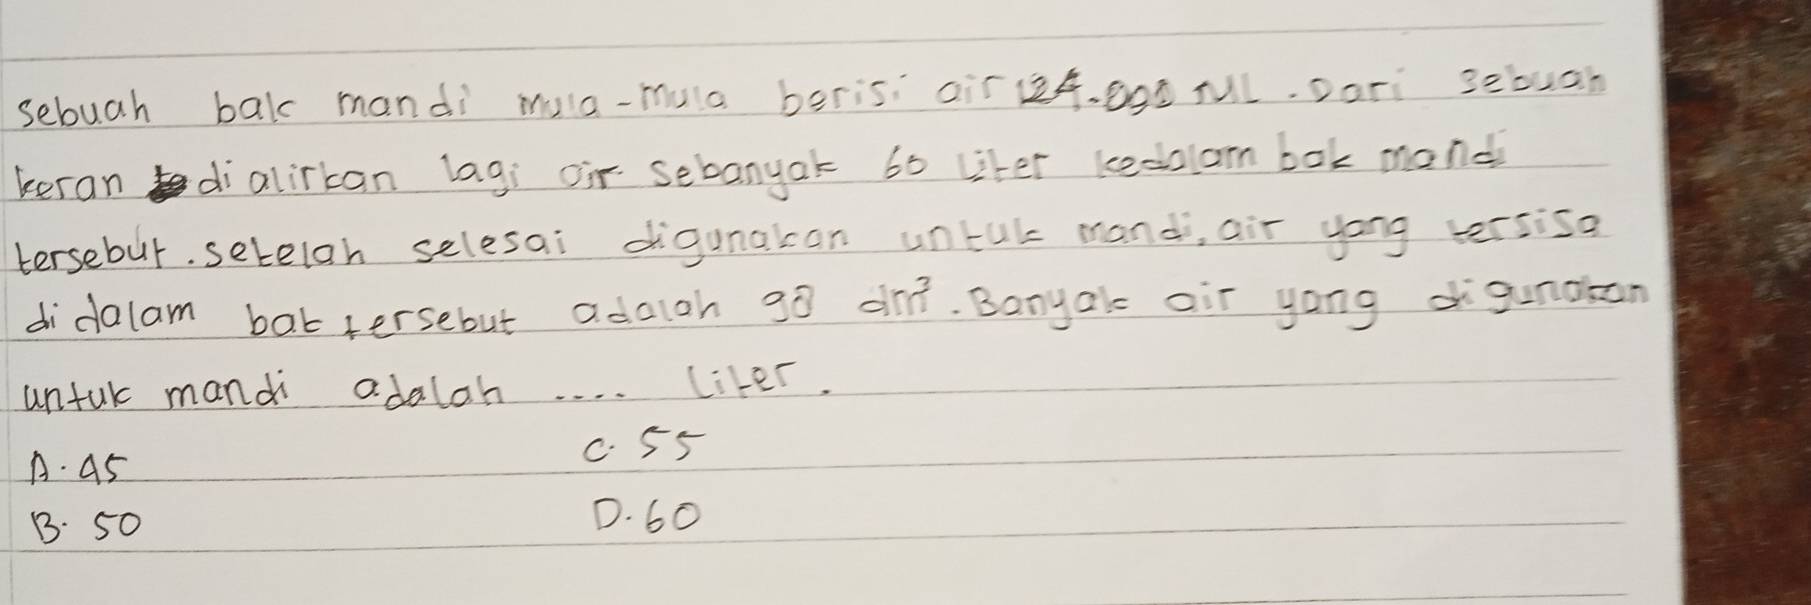 sebuah bak mandi mula-mula berisi air 124.000 ML. Dari sebuah
keran dialirkan lagi air sebanyak 60 liter kedalam bak mandi
tersebut. setelah selesai digunakan untuk mandi, air yang tersisa
didalam bak tersebut adalah dm³. Banyak air yang digunakan
untuk mandi adalah .... liter.
A. 45 C. 55
B. 50 D. 60